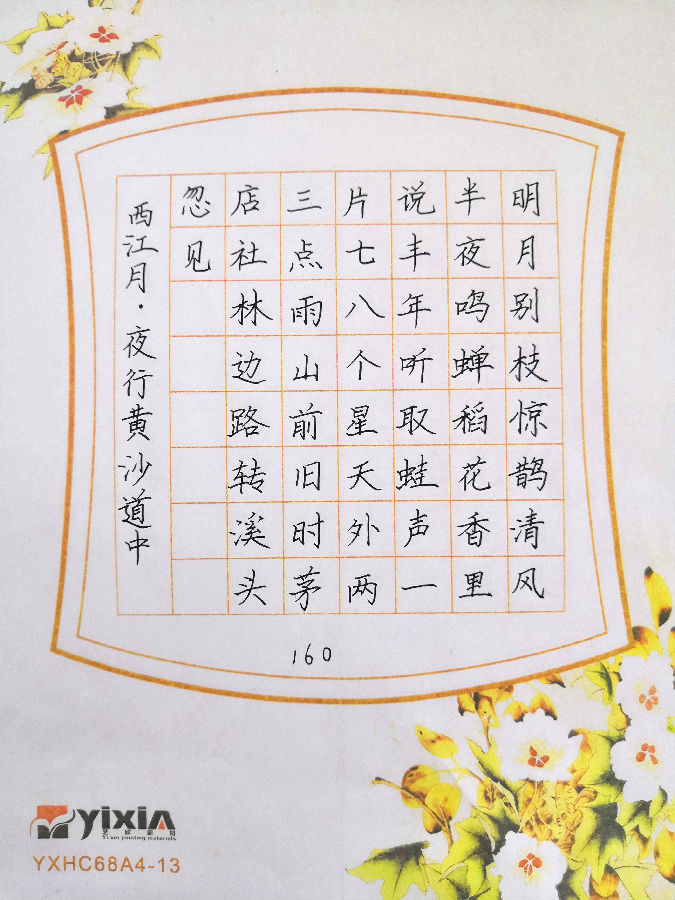 明月别枝惊鹊清风
半夜鸣蝉稻花香里
说丰年听取蛙声一
片七八个星天外两
三点雨山前旧时茅
店社林边路转溪头
忽见
西江月·夜行黄沙道中
160
yixin
Yi xin painting materials
YXHC68A4-13